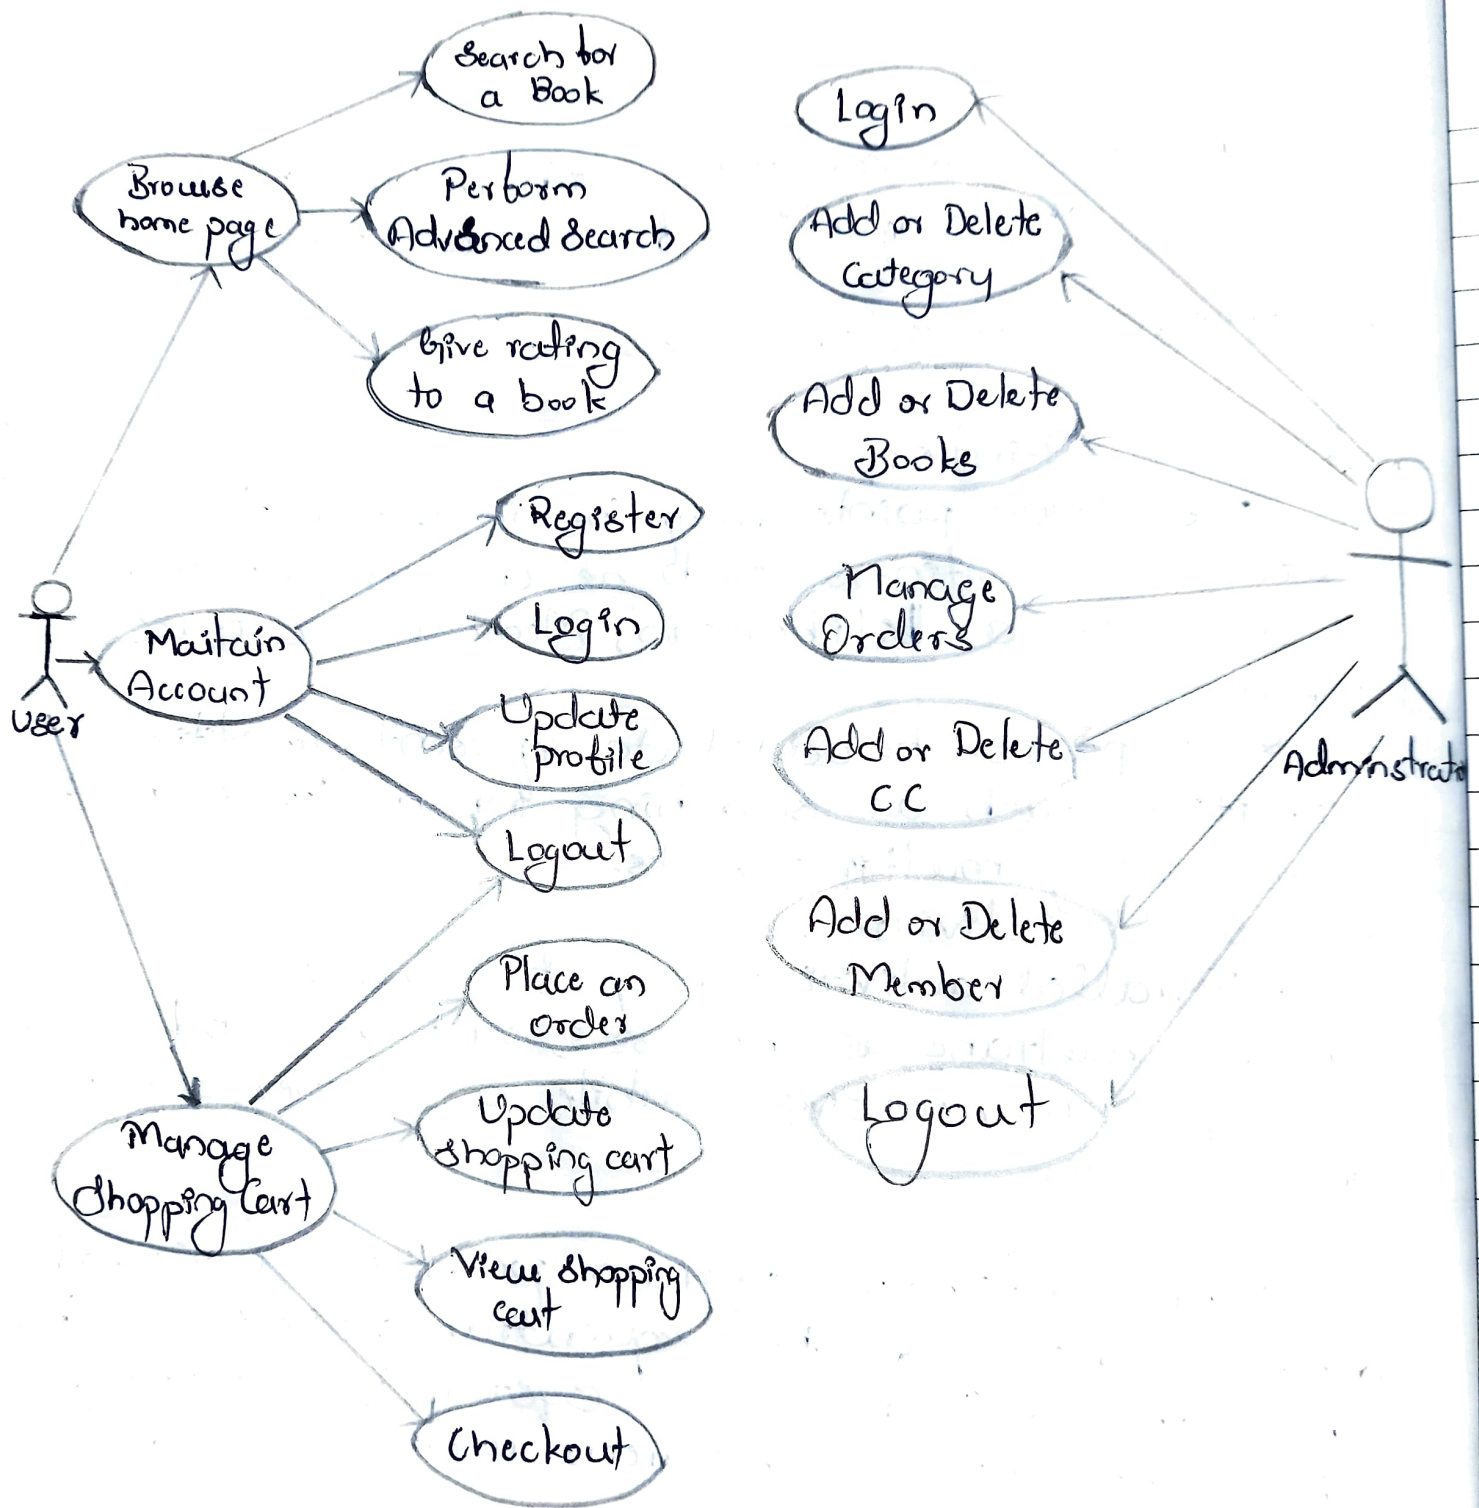 Search for
a Book
Browse
home page
Perform
Advanced Search
Give rating
to a book
Register
Login
User
Maitain
Account
Update
profile
Logout
Place an
order
Manage
Shopping Cart
Update
shopping cart
View Shopping
cart
Checkout
Login
Add or Delete
Category
Add or Delete
Books
Manage
Orders
Add or Delete
CC
Add or Delete
Member
Logout
Adminstrato